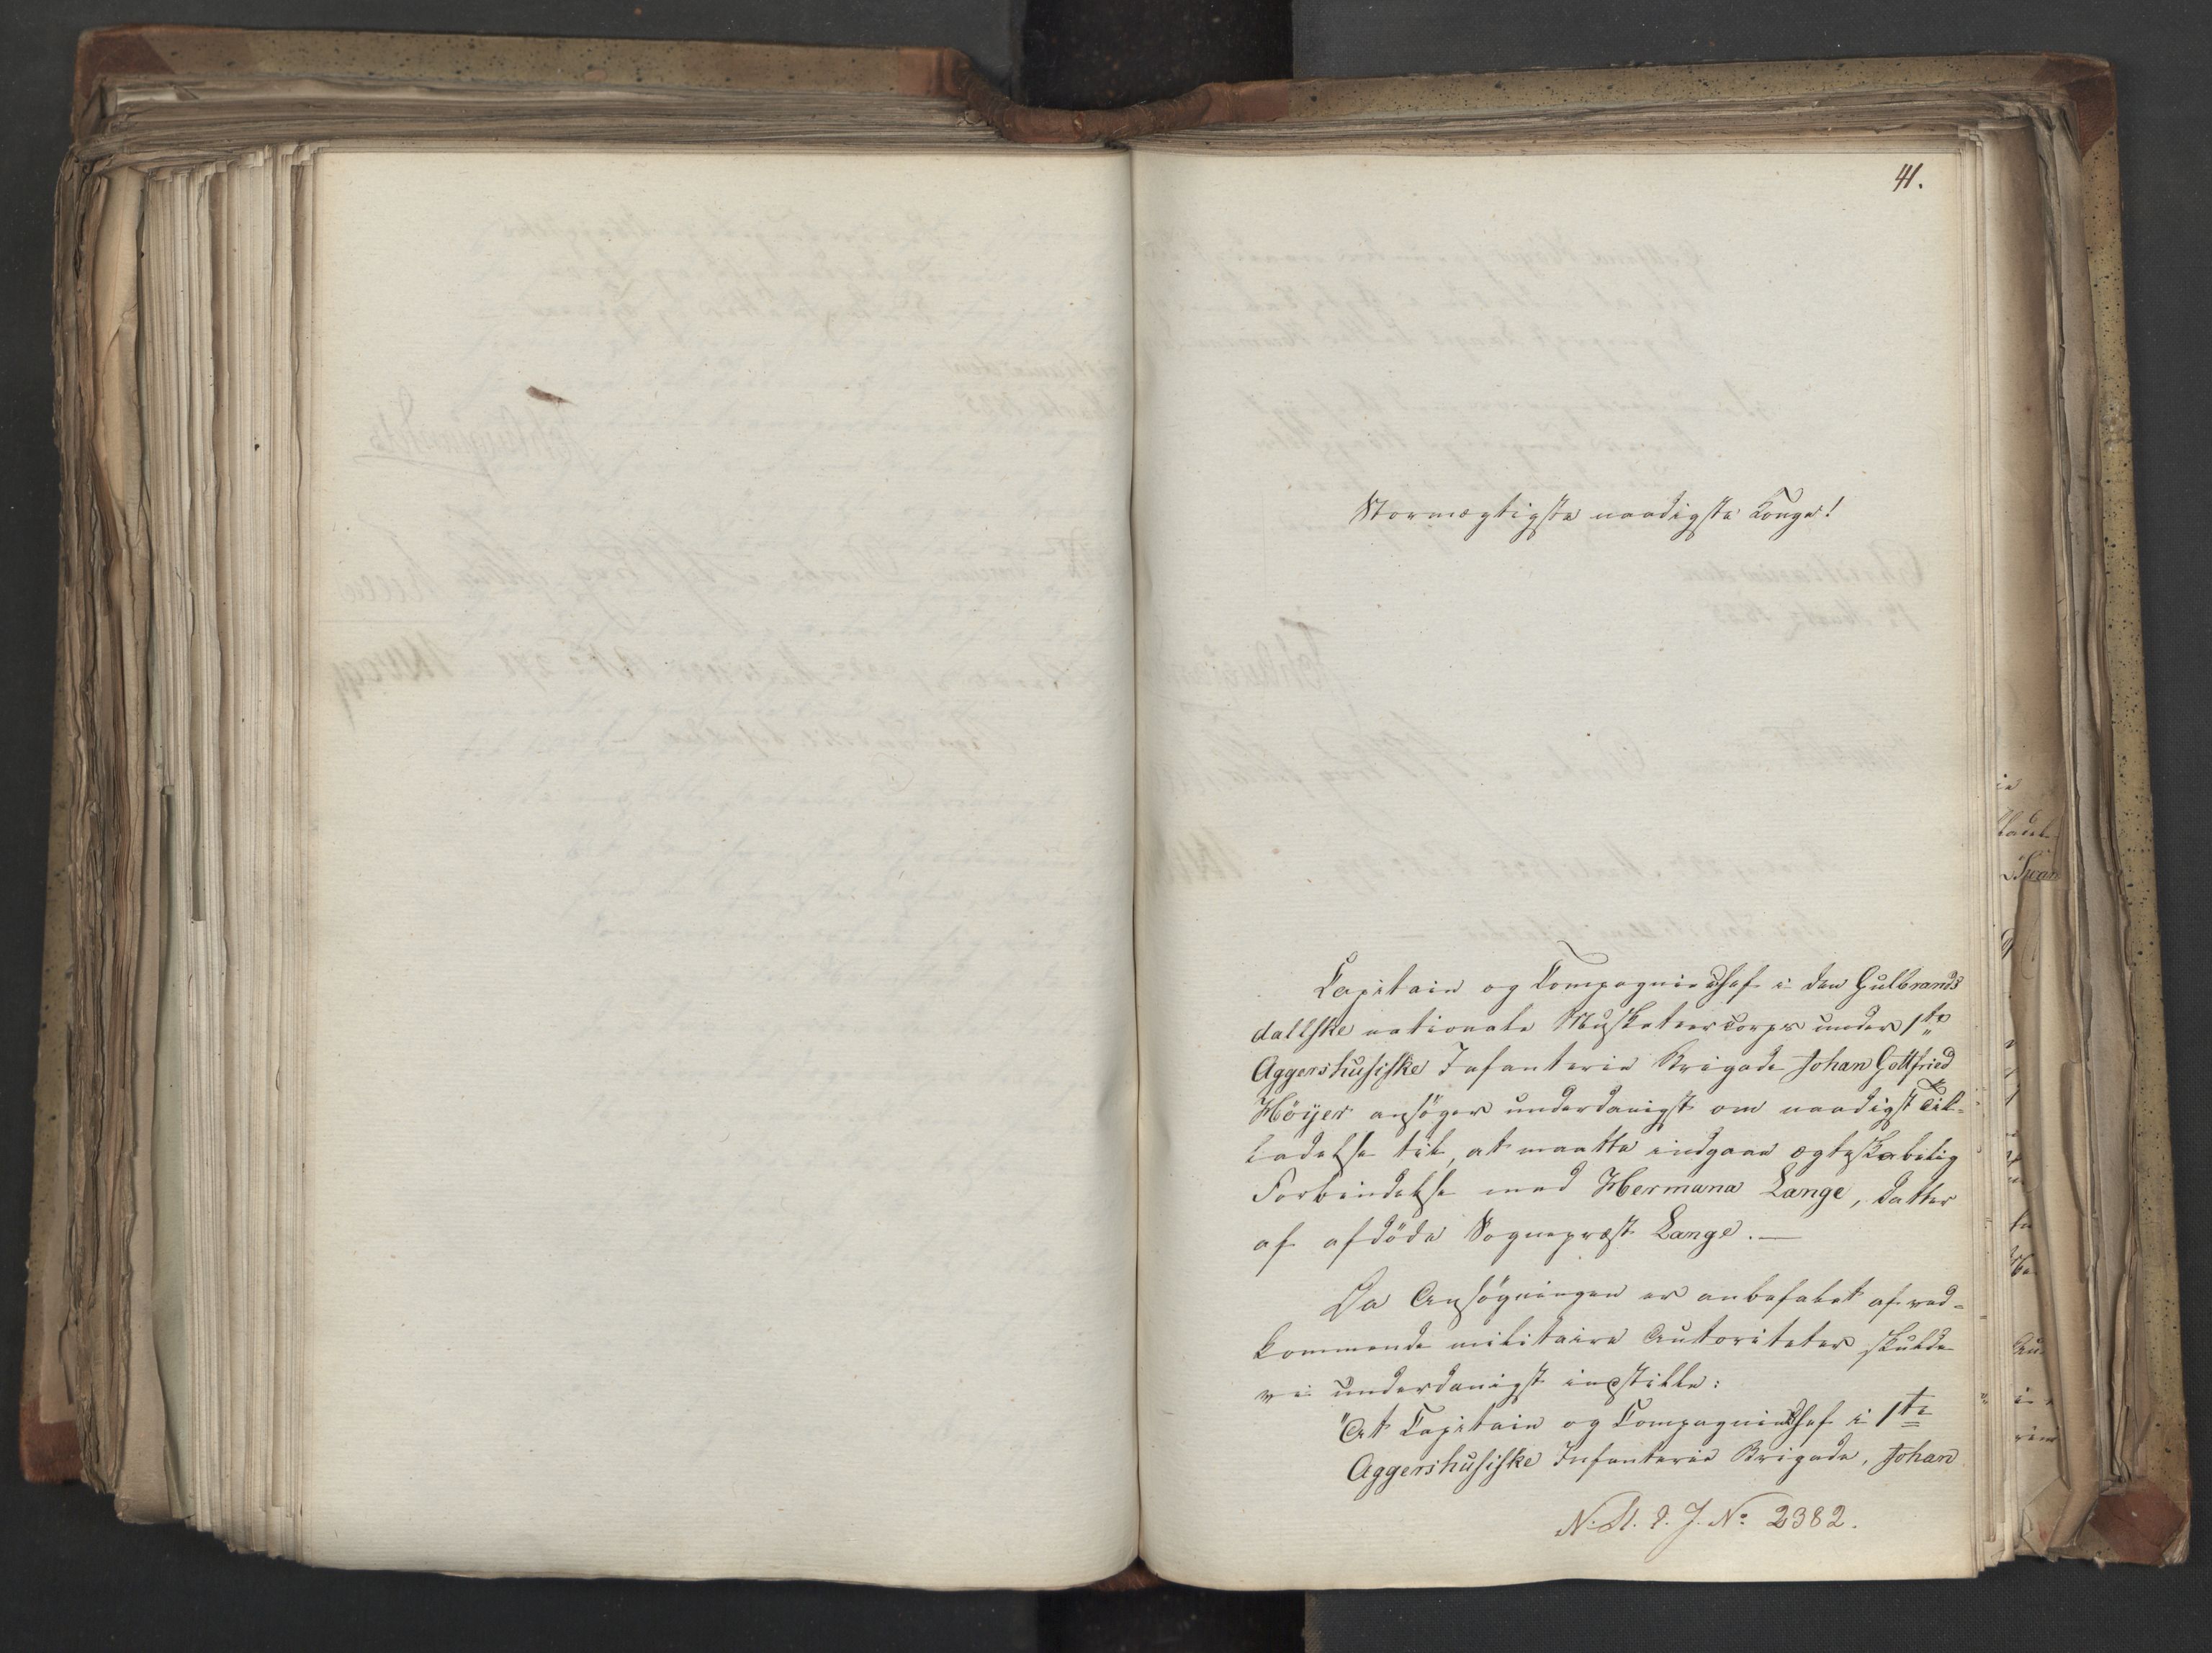 41.
Stormægtigste naadigste Konge!
Capitain og Compagniechef i den Gulbrands
dallske nationale Musketeercorps under 1te
Aggershusiske Infanterie Brigade Johan Gottfried
Höyer ansöger underdanigst om naadigst Til-
ladelse til, at maatte indgaae ægteskabelig
Forbindelse med Hermana Lange, Datter
af afdöde Sognepræst Lange. —
Da Ansögningen er anbefalet af ved-
kommende militaire Autoriteter skulde
vi underdanigst indstille:
"At Capitain og Compagniechef i 1te
Aggershusiske Infanterie Brigade, Johan
J. No 2382.